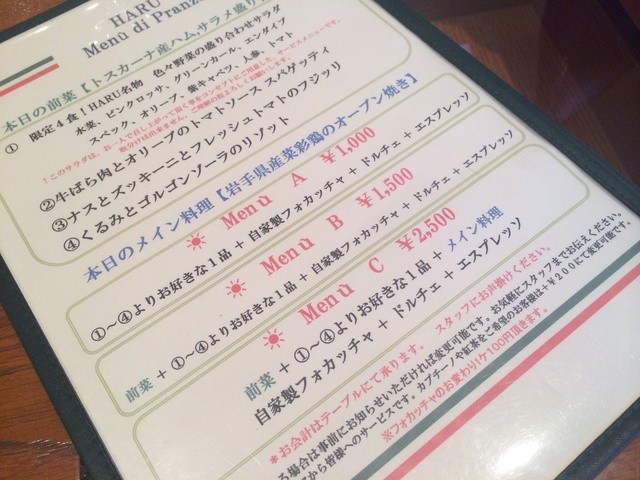 HARU
Menù di Pranz
本日の前菜【トスカーナ産ハム、サラメ盛り
① 限定4食!HARU名物 色々野菜の盛り合わせサラダ
水菜、ピンクロッサ、グリーンカール、エンダイブ
スペック、オリーブ、紫キャベツ、人参、トマト
②牛ばら肉とオリーブのトマトソース スパゲッティ
③ナスとズッキーニとフレッシュトマトのフジッリ
④くるみとゴルゴンゾーラのリゾット
本日のメイン料理【岩手県産菜彩鶏のオーブン焼き】
Menù A ¥1,000
①~④よりお好きな1品 + 自家製フォカッチャ + ドルチェ + エスプレッソ
Menù B ¥1,500
前菜 + ①~④よりお好きな1品 + 自家製フォカッチャ + ドルチェ + エスプレッソ
Menù C ¥2,500
前菜 + ①~④よりお好きな1品 + メイン料理
自家製フォカッチャ + ドルチェ + エスプレッソ
*お会計はテーブルにて承ります。 スタッフにお声掛けください。
る場合は事前にお知らせいただければ変更可能です。お気軽にスタッフまでお伝えください。
から皆様へのサービスです。カプチーノや紅茶をご希望のお客様は+¥200にて変更可能です。
※フォカッチャのお変わり1ケ100円頂きます。